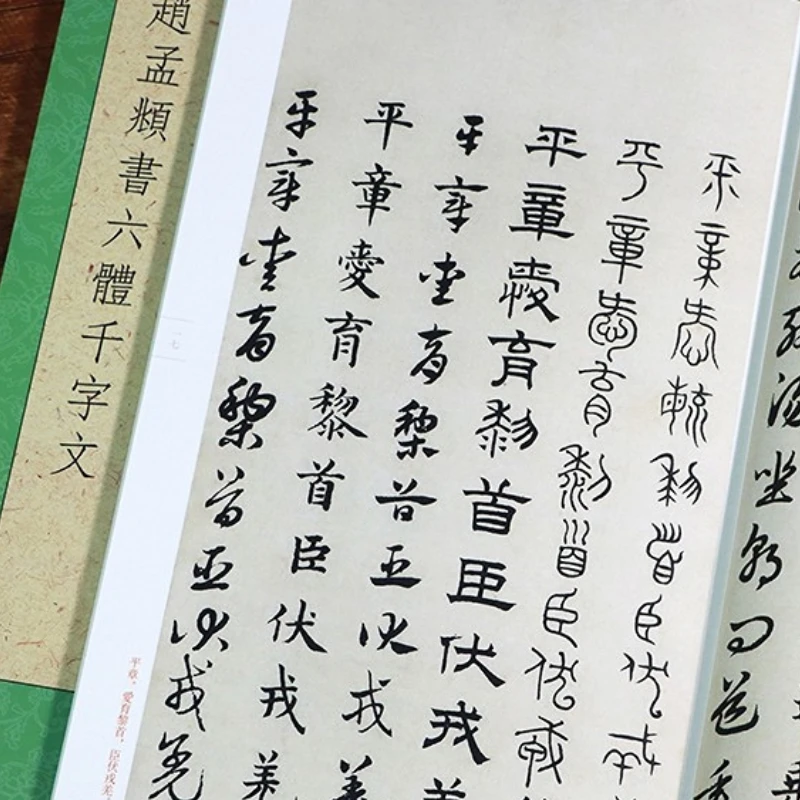 趙孟頫書六體千字文
湯坐朝問道
平章愛育黎首臣伏戎
平章愛育黎首臣伏戎
平章愛育黎首臣伏戎羌
平章愛育黎首臣伏戎羌
平章愛育黎首臣伏戎羌
平章愛育黎首臣伏戎羌
一七
平章。愛育黎首，臣伏戎羌